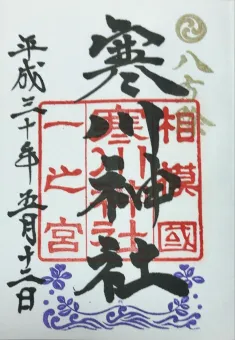 八方除
相模國
寒川神社
寒川神社
一之宮
平成三十年五月十二日